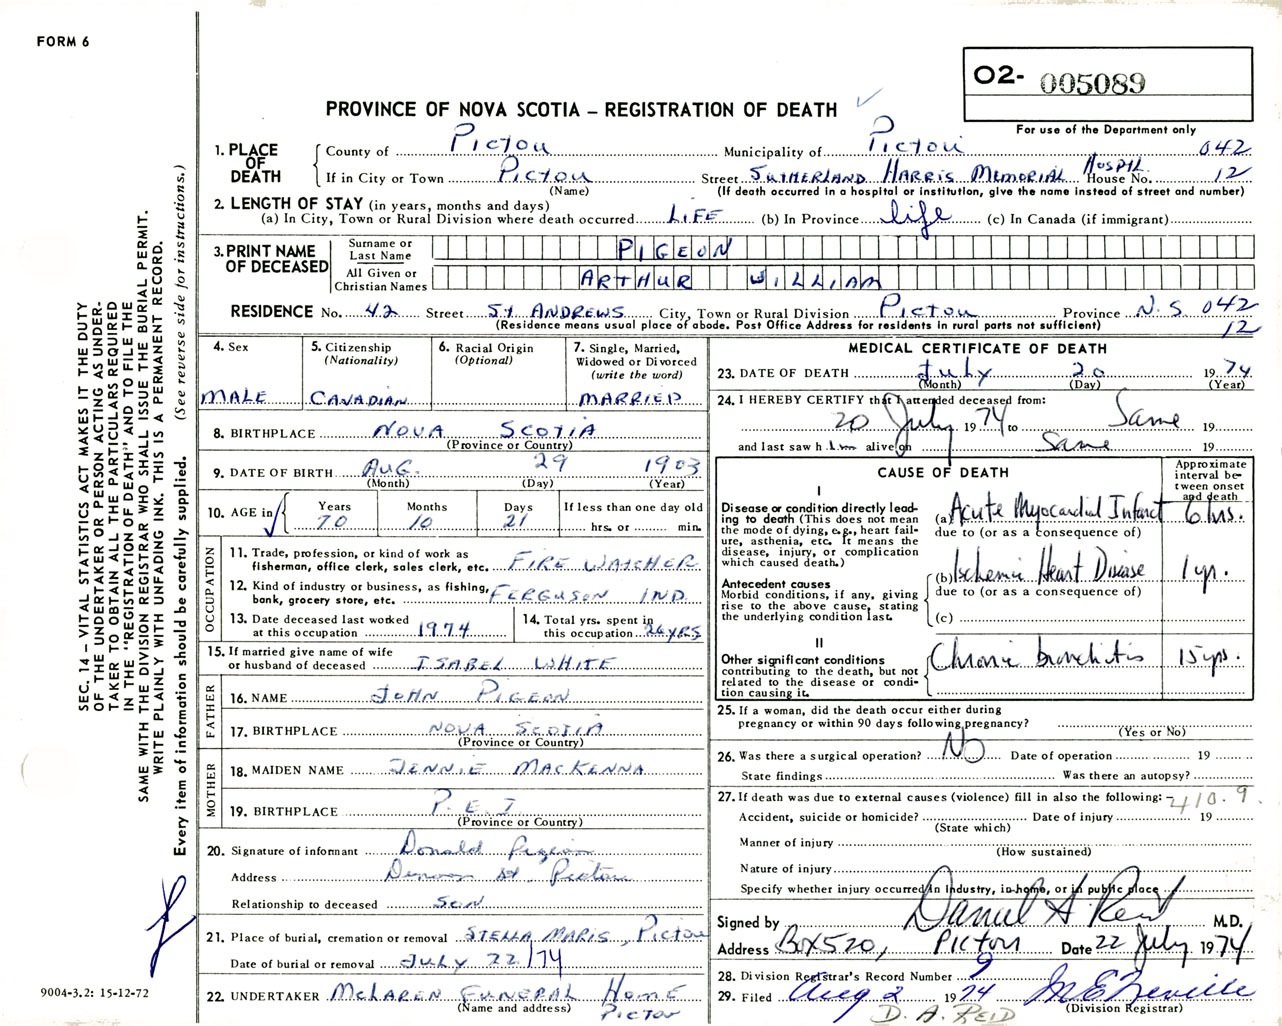 FORM 6
O2- 005089
PROVINCE OF NOVA SCOTIA – REGISTRATION OF DEATH
For use of the Department only
1. PLACE OF DEATH
County of Pictou Municipality of Pictou 042
If in City or Town Pictou Street SUTHERLAND HARRIS MEMORIAL HOSPIL House No. 12
(Name) (If death occurred in a hospital or institution, give the name instead of street and number)
2. LENGTH OF STAY (in years, months and days)
(a) In City, Town or Rural Division where death occurred LIFE (b) In Province life (c) In Canada (if immigrant)
3. PRINT NAME OF DECEASED
Surname or Last Name PIGEON
All Given or Christian Names ARTHUR WILLIAM
RESIDENCE No. 42 Street St ANDREWS City, Town or Rural Division PICTOU Province N.S 042
(Residence means usual place of abode. Post Office Address for residents in rural parts not sufficient) 12
4. Sex
MALE
5. Citizenship (Nationality)
CANADIAN
6. Racial Origin (Optional)
7. Single, Married, Widowed or Divorced (write the word)
MARRIED
8. BIRTHPLACE NOVA SCOTIA
(Province or Country)
9. DATE OF BIRTH AUG. 29 1903
(Month) (Day) (Year)
10. AGE in Years Months Days If less than one day old
70 10 21 hrs. or min.
OCCUPATION
11. Trade, profession, or kind of work as
fisherman, office clerk, sales clerk, etc. FIRE WATCHER
12. Kind of industry or business, as fishing,
bank, grocery store, etc. FERGUSON IND.
13. Date deceased last worked
at this occupation 1974
14. Total yrs. spent in
this occupation 26 YRS
15. If married give name of wife
or husband of deceased ISABEL WHITE
FATHER
16. NAME JOHN PIGEON
17. BIRTHPLACE NOVA SCOTIA
(Province or Country)
MOTHER
18. MAIDEN NAME JENNIE MACKENNA
19. BIRTHPLACE P.E.I
(Province or Country)
20. Signature of informant Donald Pigeon
Address St, Pictou
Relationship to deceased SON
21. Place of burial, cremation or removal STELLA MARIS, Pictou
Date of burial or removal JULY 22/74
22. UNDERTAKER McLAREN FUNERAL HOME
(Name and address) PICTOU
MEDICAL CERTIFICATE OF DEATH
23. DATE OF DEATH July 20 1974
(Month) (Day) (Year)
24. I HEREBY CERTIFY that I attended deceased from:
20 July 1974 to Same 19
and last saw him alive on Same 19
CAUSE OF DEATH
Approximate interval between onset and death
I
Disease or condition directly leading to death (This does not mean
the mode of dying, e.g., heart failure, asthenia, etc. It means the
disease, injury, or complication
which caused death.)
(a) Acute Myocardial Infarct 6 hrs.
due to (or as a consequence of)
Antecedent causes
Morbid conditions, if any, giving
rise to the above cause, stating
the underlying condition last.
(b) Ischemic Heart Disease 1 yr.
due to (or as a consequence of)
(c)
II
Other significant conditions
contributing to the death, but not
related to the disease or condition causing it.
Chronic bronchitis 15 yrs.
25. If a woman, did the death occur either during
pregnancy or within 90 days following pregnancy?
(Yes or No)
26. Was there a surgical operation? No Date of operation 19
State findings Was there an autopsy?
27. If death was due to external causes (violence) fill in also the following: 410.9
Accident, suicide or homicide? Date of injury 19
(State which)
Manner of injury
(How sustained)
Nature of injury
Specify whether injury occurred in Industry, in home, or in public place
Signed by Daniel A Reid M.D.
Address Box 520, PICTOU Date 22 July 1974
28. Division Registrar's Record Number 9
29. Filed Aug 2 1974 M E Neville
D. A. REID (Division Registrar)
SEC. 14 – VITAL STATISTICS ACT MAKES IT THE DUTY
OF THE UNDERTAKER OR PERSON ACTING AS UNDERTAKER TO OBTAIN ALL THE PARTICULARS REQUIRED
IN THE "REGISTRATION OF DEATH" AND TO FILE THE
SAME WITH THE DIVISION REGISTRAR WHO SHALL ISSUE THE BURIAL PERMIT.
WRITE PLAINLY WITH UNFADING INK. THIS IS A PERMANENT RECORD.
Every item of information should be carefully supplied. (See reverse side for instructions.)
9004-3.2: 15-12-72